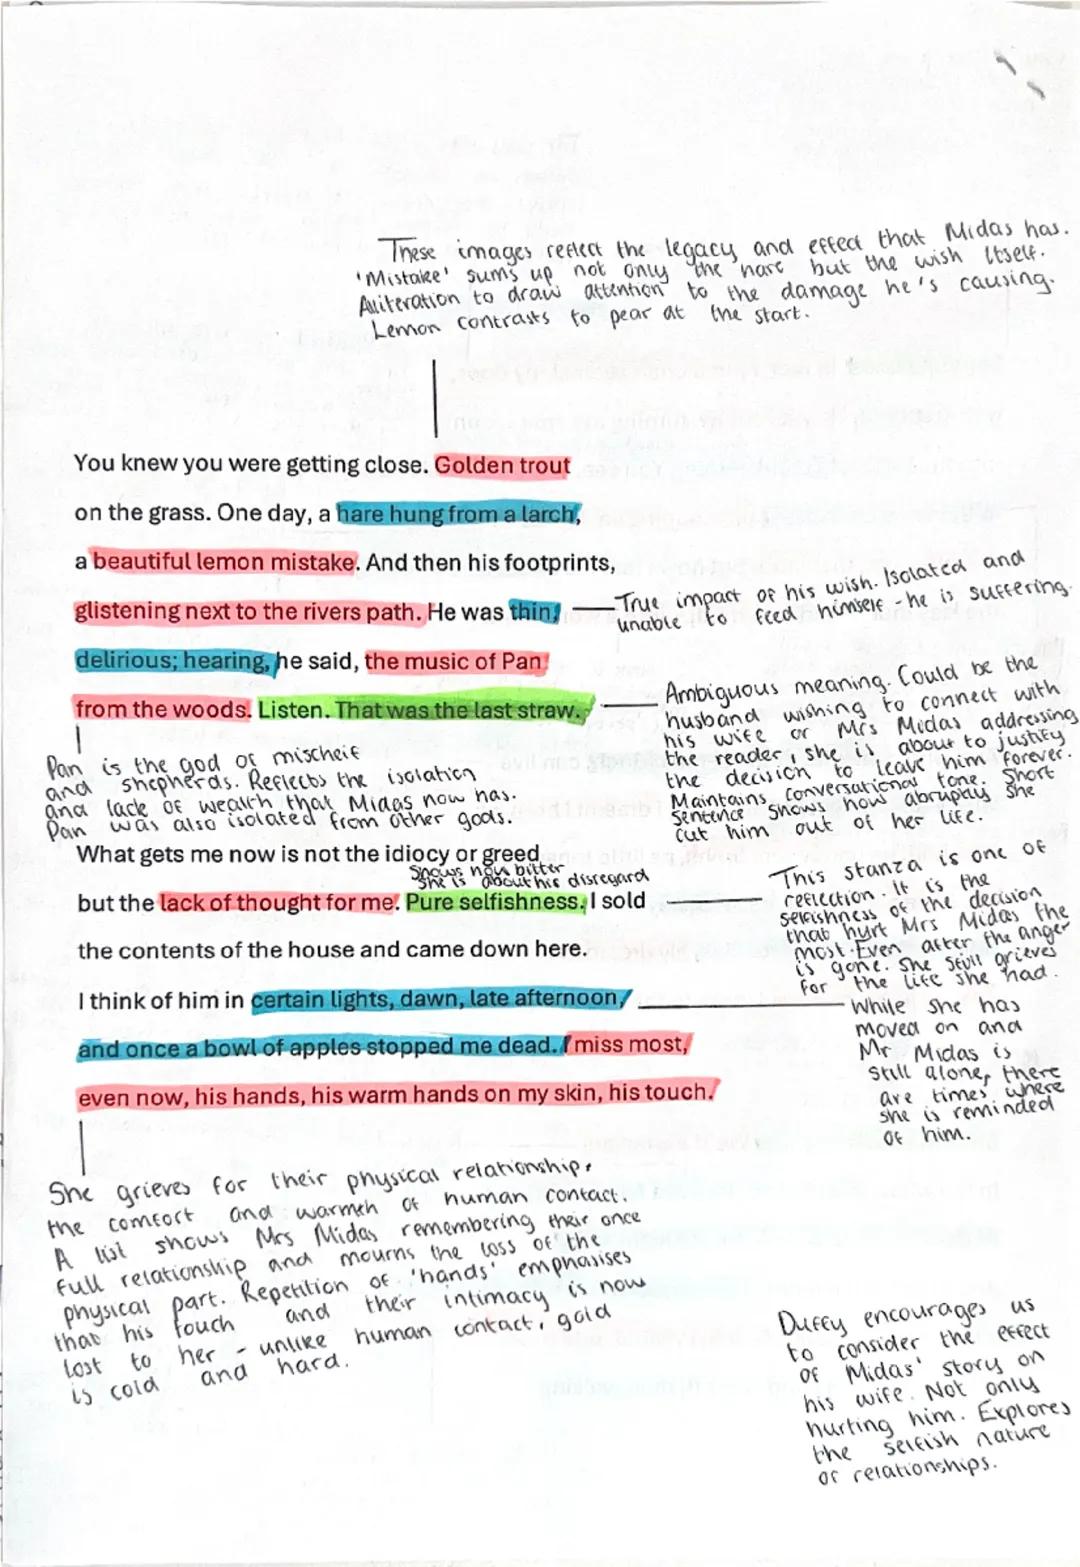 These images reflect the legacy and effect that Midas has.
'Mistake' sums up not only the hare but the wish itself.
Aliteration to draw attention to the damage he's causing.
Lemon contrasts to pear at the start.
You knew you were getting close. Golden trout
on the grass. One day, a hare hung from a larch,
a beautiful lemon mistake. And then his footprints,
glistening next to the rivers path. He was thin,
delirious; hearing, he said, the music of Pan
from the woods. Listen. That was the last straw.
True impact of his wish. Isolated and
unable to feed himself - he is suffering.
Ambiguous meaning. Could be the
husband wishing to connect with
his wife or Mrs Midas addressing
the reader, she is about to justify
the decision to leave him forever.
Maintains conversational tone. Short
sentence shows how abruptly she
cut him out of her life.
Pan is the god of mischeif
and shepherds. Reflects the isolation
and lack of wealth that Midas now has.
Pan was also isolated from other gods.
What gets me now is not the idiocy or greed
Shows how bitter
she is about his disregard
but the lack of thought for me. Pure selfishness. I sold
the contents of the house and came down here.
I think of him in certain lights, dawn, late afternoon,
and once a bowl of apples stopped me dead. I miss most,
even now, his hands, his warm hands on my skin, his touch.
This stanza is one of
reflection. It is the
selfishness of the decision
that hurt Mrs Midas the
most. Even after the anger
is gone. She still grieves
for the life she had.
While she has
moved on and
Mr Midas is
still alone, there
are times where
she is reminded
of him.
She grieves for their physical relationship,
the comfort and warmth of human contact.
A list shows Mrs Midas remembering their once
full relationship and mourns the loss of the
physical part. Repetition of 'hands' emphasises
that his touch and their intimacy is now
lost to her - unlike human contact, gold
is cold and hard.
Duffy encourages us
to consider the effect
of Midas' story on
his wife. Not only
hurting him. Explores
the selfish nature
of relationships.